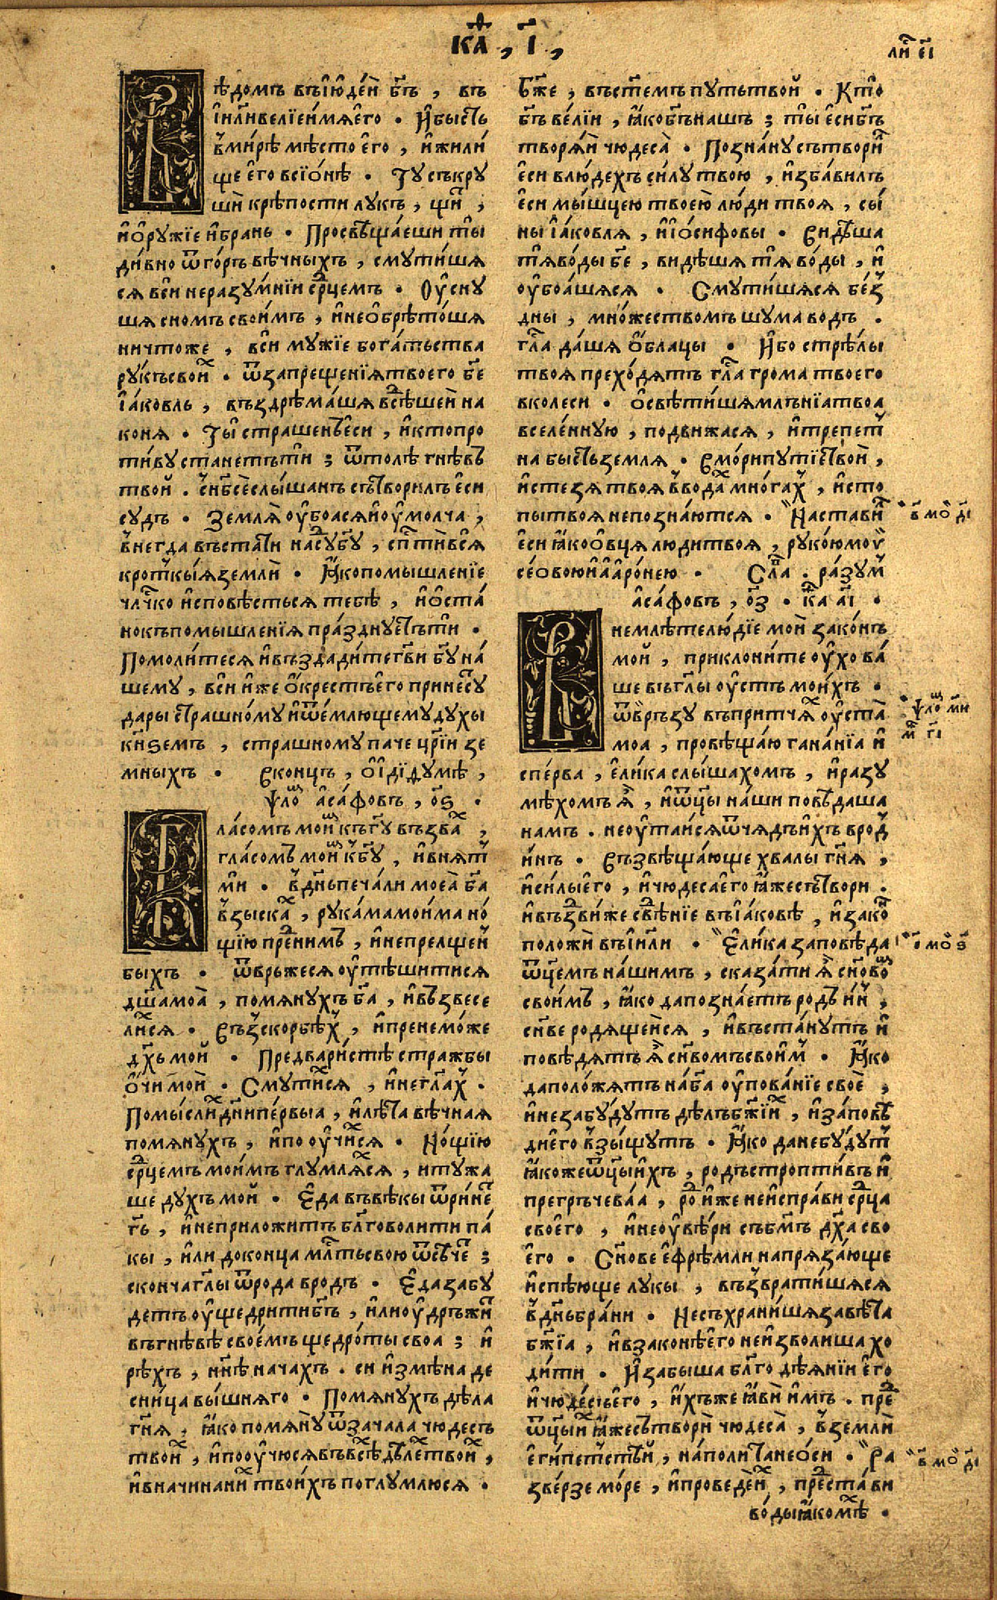 к҃а , і҃ ,
ли҃ є҃і
ѣдомъ въ і҆ю҆де́й бг҃ъ , въ
і҆и҃ли ве́лїе и҆́мя є҆го̀ · И҆ бы́сть
в ми́рѣ мѣ́сто є҆го̀ , и҆ жили́
ще є҆го̀ в сїо́нѣ · Ту съкру
шѝ крѣ́пости лукъ , щи҃ ,
и҆ ѻ҆рꙋ́жїе и҆ бра́нь · Просвѣща́еши ты̀
ди́вно ѿ го́ръ вѣ́чныхъ , смути́шя
ся вси̑ неразу́мнїи ср҃цемъ · Оу҆сну
шя сно́мъ свои́мъ , и҆ не ѻ҆брѣто́шя
ничто́же , вси̑ му́жїе бога́тьства
рука́мъ свои҃ · ѿ запреще́нїя твоего̀ бж҃е
і҆а́ковль , въздрѣма́шя всѣ́дшеи на
коня · Ты̀ стра́шенъ є҆сѝ , и҆ кто̀ про
ти́ву ста́нетъ тѝ ; ѿто́лѣ гнѣ́въ
твой . с нб҃сѐ слы́шанъ сътвори́лъ є҆сѝ
су́дъ · Земля̀ оу҆боя́ся и҆ оу҆молча̀ ,
внегда̀ въста́ти на су́дъ бг҃у , сп҃сти̑ вся̑
кро́ткыя землѝ · Ꙗ҆ко помышле́нїе
чл҃чко и҆спові́сться тебѣ̀ , и҆ ѻ҆ста́
нокъ помышле́нїя пра́зднуетъ ти ·
Помоли́теся и҆ въздади́те гв҃и бг҃у на́
шему , вси̑ и҆̀же ѻ҆́крестъ є҆го̀ принесу́
дары стра́шному и҆ ѿе́млющему ду́хы
кн҃ѕемъ , стра́шному па́че цр҃їи зе
мны́хъ · В коне́цъ , ѻ҆ і҆диѳу́мѣ ,
ѱло҃ а҆са́фовъ , о҃ѕ ·
ла́сомъ мои҃ къ гу҃ възва́х ,
гла́сомъ мои҃ к бг҃у , и҆ вня́т
ми · в де́нь печа́ли моеа̀ бг҃а
взыска́х , рука́ма мои́ма но́
щїю пред ни́мъ , и҆ не прелще́н
бы́хъ · ѿвръ́жеся оу҆тѣ́шитися
дш҃а моа̀ , помяну́хъ бг҃а , и҆ възвесе
ли́ся · Въскорбѣ́х , и҆ пренемо́же
дх҃ъ мой · Предвари́стѣ стра́жбы
ѻ҆́чи мои · Смути́хся , и҆ не гл҃ах ·
Помы́слих дн҃и пе́рвыа , и҆ лѣ́та вѣ́чная
помяну́хъ , и҆ поучи́хся · Но́щїю
ср҃цемъ мои́мъ глумля́хся , и тужа
ше ду́хъ мой · Є҆да̀ въ вѣ́кы ѿри́нет
гь҃ , и҆ не приложи́тъ бл҃говоли́ти па́
кы , и҆лѝ до конца мл҃ть свою ѿсѣче́т ;
сконча̀ гл҃ы ѿ ро́да в ро́дъ · Є҆да̀ забу́
детъ оу҆ще́дрити бг҃ъ , и҆лѝ оу҆дръжи́т
въ гнѣ́вѣ свое́мъ щедро́ты своа̀ ; и҆
рѣ́хъ , нн҃ѣ нача́хъ . си и҆змѣ́на де
сни́ца вы́шняго · Помяну́хъ дѣ́ла
гн҃я , ꙗ҆ко помяну́ ѿ зача́ла чюде́съ
твои҃ , и҆ поучю́ся въ всѣ́х дѣ́лех твои҃ ,
и҆ в начина́нїих твои́хъ поглумлю́ся ·
бж҃е , въ ст҃емъ пу́ть твой · Кто̀
бг҃ъ ве́лїи , ꙗ҆ко бг҃ъ нашъ ; ты̀ є҆сѝ бг҃ъ
творя́и чюдеса̀ · Позна́ну сътвори́л
є҆сѝ в лю́дехъ си́лу твою , и҆зба́вилъ
є҆сѝ мы́шцею твое́ю лю́ди твоя , сы́
ны і҆а́ковля , и҆ і҆о́сифовы · Видѣша
тя во́ды бж҃е , видѣшя тя во́ды , и҆
оу҆боа́шяся · Смути́шяся бе́з
дны , мно́жествомъ шу́ма водъ .
гл҃а да́шя ѻ҆́блацы · И҆́бо стрѣ́лы
твоя прехо́дятъ гл҃а гро́ма твоего
в колеси · ѻ҆свѣти́шя мо́лнїа твоа
вселе́нную , подви́жася , и҆ тре́пет
на бы́сть земля · В мо́ри путїе твои ,
и҆ стезя̀ твоя в вода́х мно́гах , и҆ сто
пы твоя не позна́ются · Наста́вил
є҆сѝ ꙗ҆ко ѻ҆вця лю́ди твоя , руко́ю мо
се́овою и҆ а҆аро́нею · Сла҃ . ра́зум
а҆са́фовъ , о҃з · ка҃ а҃і ·
немлѣ́те лю́дїе мои зако́нъ
мой , приклони́те оу҆́хо ва́
ше въ гл҃ы оу҆стъ мои́хъ ·
ѿвръ́зу въ при́тчях оу҆ста̀
моа , провѣща́ю гана́нїа и҆
спе́рва , є҆ли́ка слы́шахомъ , и҆ разу
мѣ́хомъ я҆̀ , и҆ ѿцы̀ на́ши повѣ́даша
намъ . не оу҆таи́ся ѿ чя́дъ и҆́хъ в род
и҆́нъ · Възвѣща́юще хвалы гн҃я ,
и҆ си́лы є҆го , и҆ чюдеса̀ є҆го ꙗ҆́же сътвори .
и҆ въздви́же свѣдѣ́нїе въ і҆а́ковѣ , и҆ зако́н
положѝ въ і҆и҃ли · Є҆ли́ка заповѣ́да
ѿце́мъ на́шимъ , сказа́ти я҆̀ сн҃ово́м
свои́мъ , ꙗ҆ко да позна́етъ ро́дъ и҆́н ,
сн҃ве родя́щеися , и҆ въста́нутъ и҆
повѣ́дятъ я҆̀ сн҃вомъ свои́м · Ꙗ҆ко
да поло́жятъ на бг҃а оу҆пова́нїе своѐ ,
и҆ не забу́дутъ дѣ́лъ бж҃їи , и҆ за́повѣ
ди є҆го взы́щутъ · Ꙗ҆ко да не бу́дут
ꙗ҆́коже ѿцы̀ и҆́хъ , ро́дъ стропти́въ и҆
прегръчева́а , ро҃ и҆̀же не и҆спра́ви ср҃ца
своего̀ , и҆ не оу҆вѣ́ри съ бг҃мъ дх҃а сво
є҆го̀ · Сн҃ове є҆фрѣ́мли напряза́юще
и҆ спѣ́юще лу́кы , възврати́шяся
в де́нь бра́ни · Не съхрани́шя завѣ́та
бж҃їа , и҆ в зако́нѣ є҆го̀ не и҆зво́лиша хо
ди́ти · И҆ забы́ша бл҃годѣя́нїи є҆го̀
и҆ чюде́съ є҆го , и҆́хъ же ꙗ҆вѝ и҆̀мъ . пред
ѿцы̀ и҆́х ꙗ҆́же сътворѝ чюдеса̀ , в землѝ
є҆ги́петстѣи , на по́ли та́неоси · Ра
зве́рзе мо́ре , и҆ проведѐ и҆̀х , предста́ви
во́ды ꙗ҆ко мѣ́х ·
в҃ мо҃ д҃і
ѱало҃м
м҃ г҃і
в҃ мо҃ д҃і